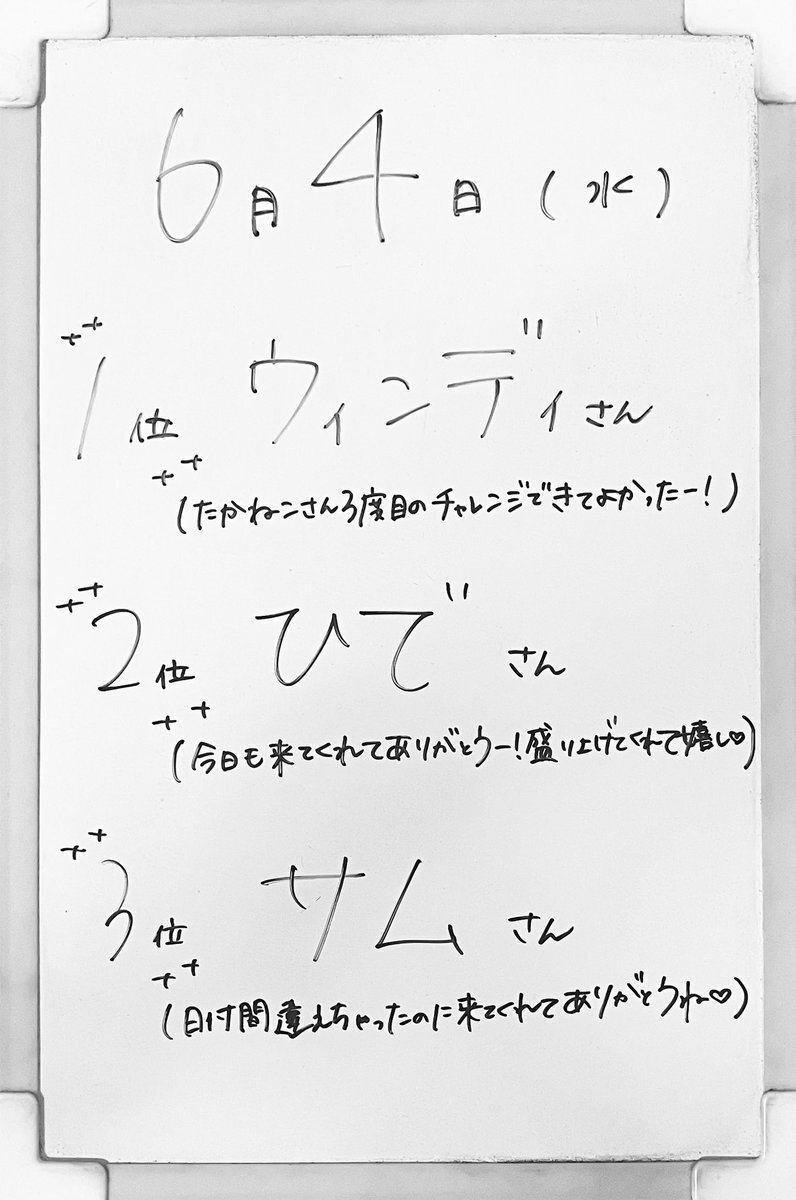 6月4日(水)
1位 ウィンディさん
(たかねこさん3度目のチャレンジできてよかったー!)
2位 ひでさん
(今日も来てくれてありがとうー!盛り上げてくれて嬉し♡)
3位 サムさん
(日付間違えちゃったのに来てくれてありがとうね♡)